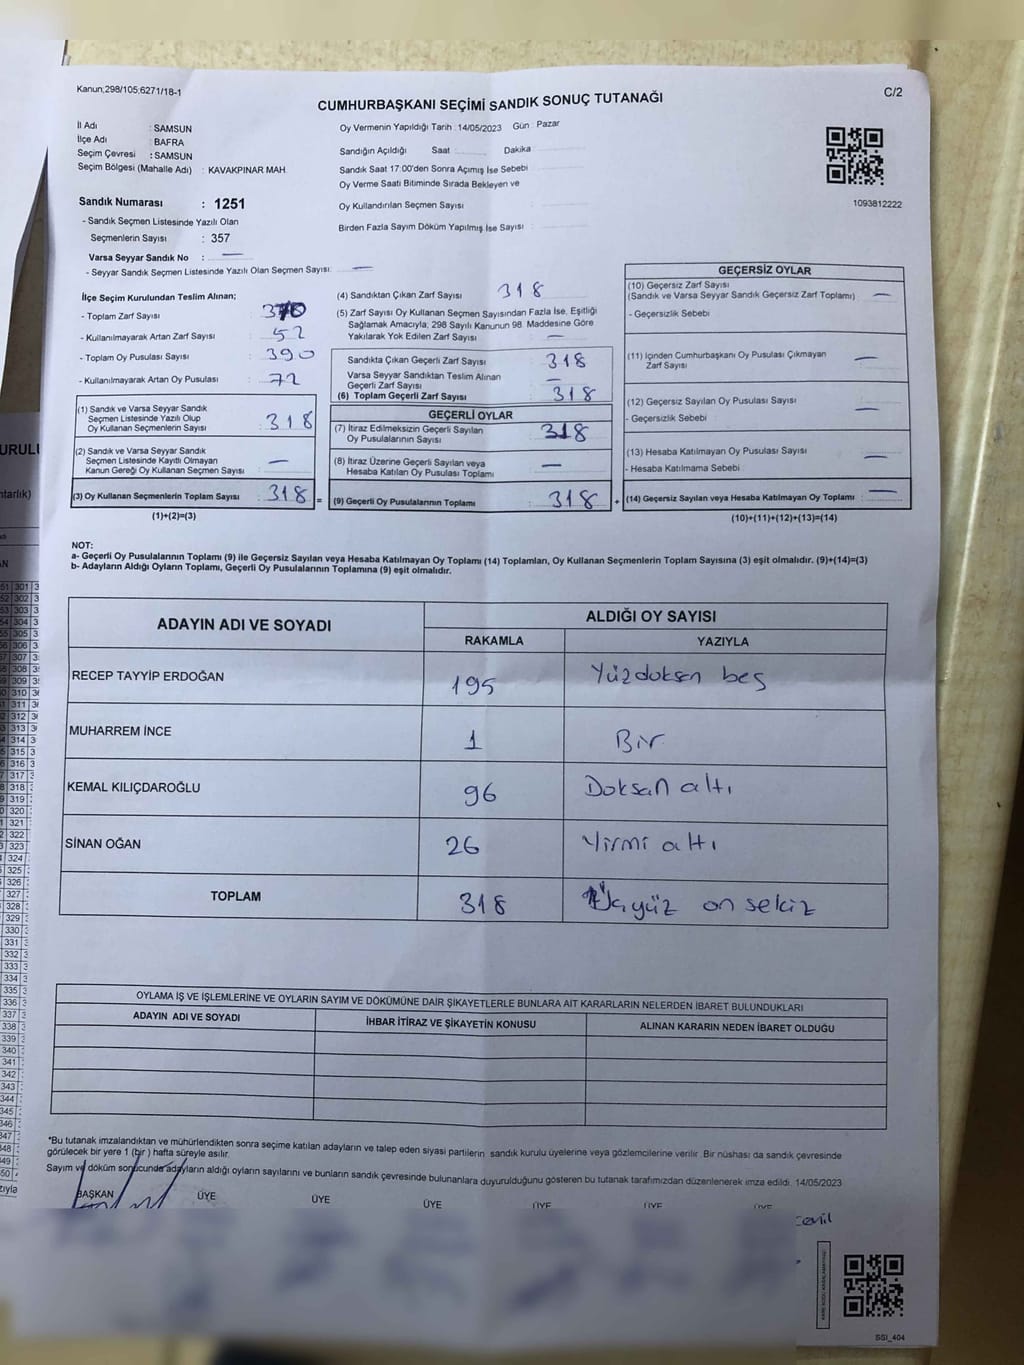 Kanun;298/105;6271/18-1
C/2
CUMHURBAŞKANI SEÇİMİ SANDIK SONUÇ TUTANAĞI
İl Adı : SAMSUN
İlçe Adı : BAFRA
Seçim Çevresi : SAMSUN
Seçim Bölgesi (Mahalle Adı) : KAVAKPINAR MAH.
Sandık Numarası : 1251
- Sandık Seçmen Listesinde Yazılı Olan
Seçmenlerin Sayısı : 357
Varsa Seyyar Sandık No : —
- Seyyar Sandık Seçmen Listesinde Yazılı Olan Seçmen Sayısı: —
Oy Vermenin Yapıldığı Tarih : 14/05/2023 Gün : Pazar
Sandığın Açıldığı Saat Dakika
Sandık Saat 17:00'den Sonra Açımış İse Sebebi
Oy Verme Saati Bitiminde Sırada Bekleyen ve
Oy Kullandırılan Seçmen Sayısı
Birden Fazla Sayım Döküm Yapılmış İse Sayısı :
1093812222
İlçe Seçim Kurulundan Teslim Alınan;
- Toplam Zarf Sayısı : 370
- Kullanılmayarak Artan Zarf Sayısı : 52
- Toplam Oy Pusulası Sayısı : 390
- Kullanılmayarak Artan Oy Pusulası : 72
(1) Sandık ve Varsa Seyyar Sandık
Seçmen Listesinde Yazılı Olup
Oy Kullanan Seçmenlerin Sayısı : 318
(2) Sandık ve Varsa Seyyar Sandık
Seçmen Listesinde Kayıtlı Olmayan
Kanun Gereği Oy Kullanan Seçmen Sayısı : —
(3) Oy Kullanan Seçmenlerin Toplam Sayısı : 318 =
(1)+(2)=(3)
(4) Sandıktan Çıkan Zarf Sayısı 318
(5) Zarf Sayısı Oy Kullanan Seçmen Sayısından Fazla İse, Eşitliği
Sağlamak Amacıyla; 298 Sayılı Kanunun 98. Maddesine Göre
Yakılarak Yok Edilen Zarf Sayısı —
Sandıkta Çıkan Geçerli Zarf Sayısı 318
Varsa Seyyar Sandıktan Teslim Alınan
Geçerli Zarf Sayısı —
(6) Toplam Geçerli Zarf Sayısı 318
GEÇERLİ OYLAR
(7) İtiraz Edilmeksizin Geçerli Sayılan
Oy Pusulalarının Sayısı 318
(8) İtiraz Üzerine Geçerli Sayılan veya
Hesaba Katılan Oy Pusulası Toplamı —
(9) Geçerli Oy Pusulalarının Toplamı 318 +
GEÇERSİZ OYLAR
(10) Geçersiz Zarf Sayısı
(Sandık ve Varsa Seyyar Sandık Geçersiz Zarf Toplamı) —
- Geçersizlik Sebebi
(11) İçinden Cumhurbaşkanı Oy Pusulası Çıkmayan
Zarf Sayısı —
(12) Geçersiz Sayılan Oy Pusulası Sayısı —
- Geçersizlik Sebebi
(13) Hesaba Katılmayan Oy Pusulası Sayısı —
- Hesaba Katılmama Sebebi
(14) Geçersiz Sayılan veya Hesaba Katılmayan Oy Toplamı : —
(10)+(11)+(12)+(13)=(14)
NOT:
a- Geçerli Oy Pusulalarının Toplamı (9) ile Geçersiz Sayılan veya Hesaba Katılmayan Oy Toplamı (14) Toplamları, Oy Kullanan Seçmenlerin Toplam Sayısına (3) eşit olmalıdır. (9)+(14)=(3)
b- Adayların Aldığı Oyların Toplamı, Geçerli Oy Pusulalarının Toplamına (9) eşit olmalıdır.
ADAYIN ADI VE SOYADI ALDIĞI OY SAYISI
RAKAMLA YAZIYLA
RECEP TAYYİP ERDOĞAN 195 Yüzdoksen beş
MUHARREM İNCE 1 Bir
KEMAL KILIÇDAROĞLU 96 Doksan altı
SİNAN OĞAN 26 Yirmi altı
TOPLAM 318 Üçyüz on sekiz
OYLAMA İŞ VE İŞLEMLERİNE VE OYLARIN SAYIM VE DÖKÜMÜNE DAİR ŞİKAYETLERLE BUNLARA AİT KARARLARIN NELERDEN İBARET BULUNDUKLARI
ADAYIN ADI VE SOYADI İHBAR İTİRAZ VE ŞİKAYETİN KONUSU ALINAN KARARIN NEDEN İBARET OLDUĞU
*Bu tutanak imzalandıktan ve mühürlendikten sonra seçime katılan adayların ve talep eden siyasi partilerin sandık kurulu üyelerine veya gözlemcilerine verilir. Bir nüshası da sandık çevresinde
görülecek bir yere 1 (bir) hafta süreyle asılır.
Sayım ve döküm sonucunda adayların aldığı oyların sayılarını ve bunların sandık çevresinde bulunanlara duyurulduğunu gösteren bu tutanak tarafımızdan düzenlenerek imza edildi. 14/05/2023
BAŞKAN ÜYE ÜYE ÜYE ÜYE ÜYE ÜYE
SSI_404